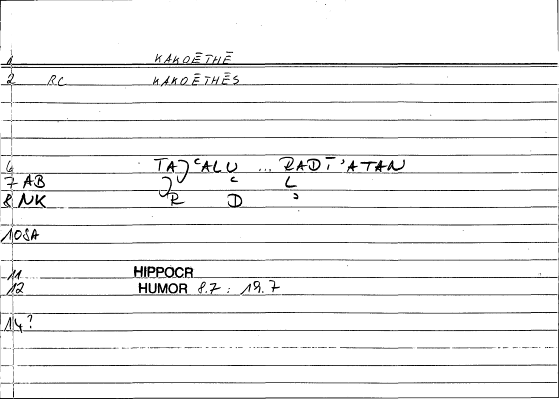 1 KAKOĒTHĒ
2 RC KAKOĒTHĒS
6 TAJʿALU ... RADĪʾATAN
7 AB J ʿ L
8 NK R D ʾ
10 SA
11 HIPPOCR
12 HUMOR 8.7 : 19.7
14 ?